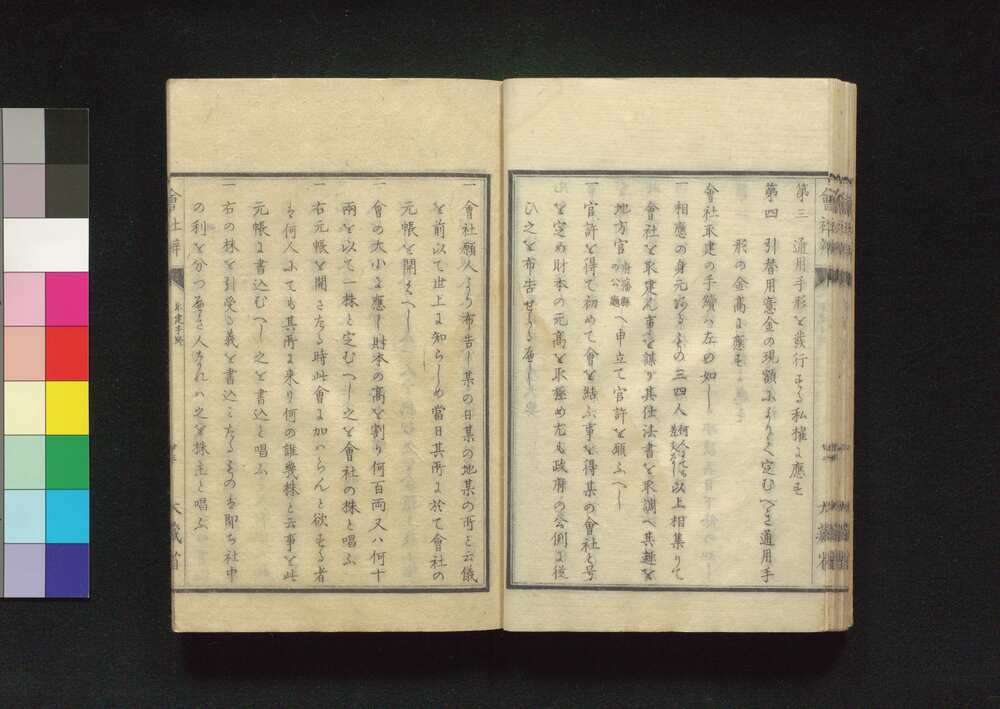 第三 通用手形を發行する私權に應も
第四 引替用意金の現額によりて定むべき通用手
形の金高に應も
會社取建の手續ハ左の如し
一相應の身元ある者の三四人何人にても差支なし以上相集りて
會社を取建ん事を謀り其仕法書を取調へ其趣を
地方官府藩縣の公廳へ申立て官許を願ふへし
一官許を得て初めて會を結ふ事を得某の會社と号
を定め財本の元高を取極め尤も政府の公例に従
ひ之を布告せらるべし
一會社願人より布告し某の日某の地某の所と云儀
を前以て世上に知らしめ當日其所に於て會社の
元帳を開くへし
一會の大小に應し財本の高を割り何百両又ハ何十
両を以て一株と定むへし之を會社の株と唱ふ
一右元帳を開きたる時此會に加ハらんと欲する者
は何人にても其所に来り何の誰幾株と云事を此
元帳に書込むへし之を書込と唱ふ
一右の株を引受る義を書込ミたるものは即ち社中
の利を分つべき人なれハ之を株主と唱ふ
會社辨
大藏省